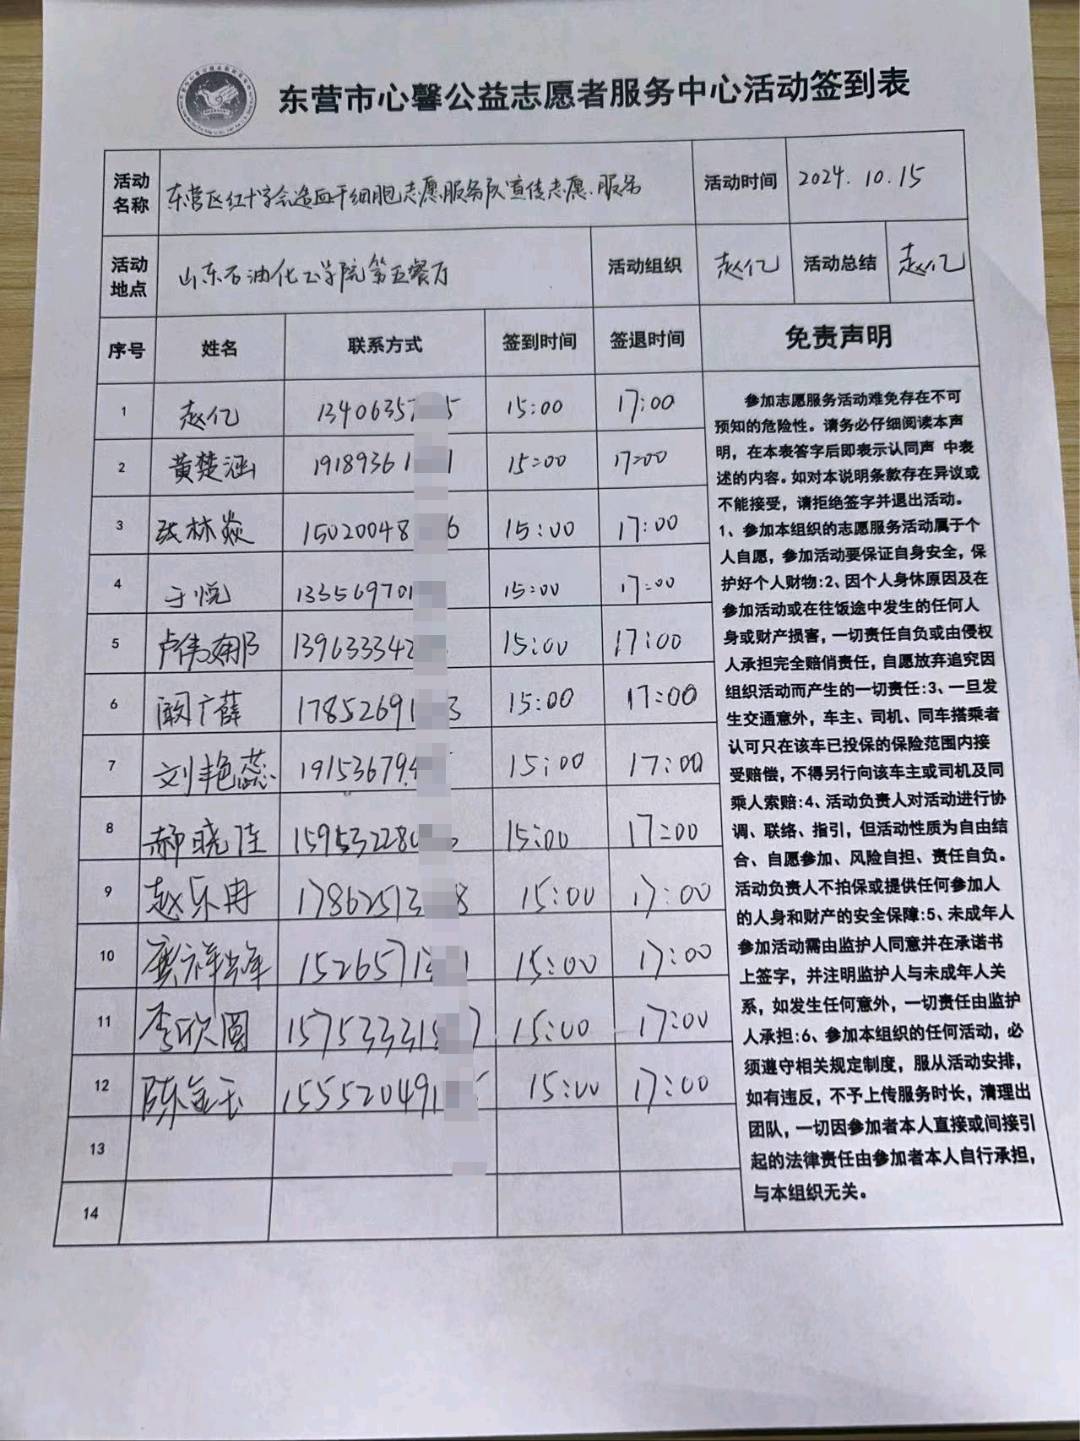 东营市心馨公益志愿者服务中心活动签到表
活动名称 东营区红十字会造血干细胞志愿服务队宣传志愿服务 活动时间 2024.10.15
活动地点 山东石油化工学院第五餐厅 活动组织 赵亿 活动总结 赵亿
序号 姓名 联系方式 签到时间 签退时间 免责声明
1 赵亿 1340635 5 15:00 17:00
2 黄楚涵 19189361 1 15:00 17:00
3 张林焱 15020048 6 15:00 17:00
4 于悦 133569701 15:00 17:00
5 卢伟娜 139633342 15:00 17:00
6 阚广薛 17852691 3 15:00 17:00
7 刘艳蕊 191536794 15:00 17:00
8 郝晓佳 159532280 15:00 17:00
9 赵乐冉 17862513 8 15:00 17:00
10 龚祥峰 1526571 1 15:00 17:00
11 李欣圆 157533319 7 15:00 17:00
12 陈金玉 155520491 15:00 17:00
13
14
参加志愿服务活动难免存在不可
预知的危险性。请务必仔细阅读本声
明，在本表签字后即表示认同声 中表
述的内容。如对本说明条款存在异议或
不能接受，请拒绝签字并退出活动。
1、参加本组织的志愿服务活动属于个
人自愿，参加活动要保证自身安全，保
护好个人财物:2、因个人身休原因及在
参加活动或在往饭途中发生的任何人
身或财产损害，一切责任自负或由侵权
人承担完全赔俏责任，自愿放弃追究因
组织活动而产生的一切责任:3、一旦发
生交通意外，车主、司机、同车搭乘者
认可只在该车已投保的保险范围内接
受赔偿，不得另行向该车主或司机及同
乘人索赔:4、活动负责人对活动进行协
调、联络、指引，但活动性质为自由结
合、自愿参加、风险自担、责任自负。
活动负责人不拍保或提供任何参加人
的人身和财产的安全保障:5、未成年人
参加活动需由监护人同意并在承诺书
上签字，并注明监护人与未成年人关
系，如发生任何意外，一切责任由监护
人承担:6、参加本组织的任何活动，必
须遵守相关规定制度，服从活动安排，
如有违反，不予上传服务时长，清理出
团队，一切因参加者本人直接或间接引
起的法律责任由参加者本人自行承担，
与本组织无关。